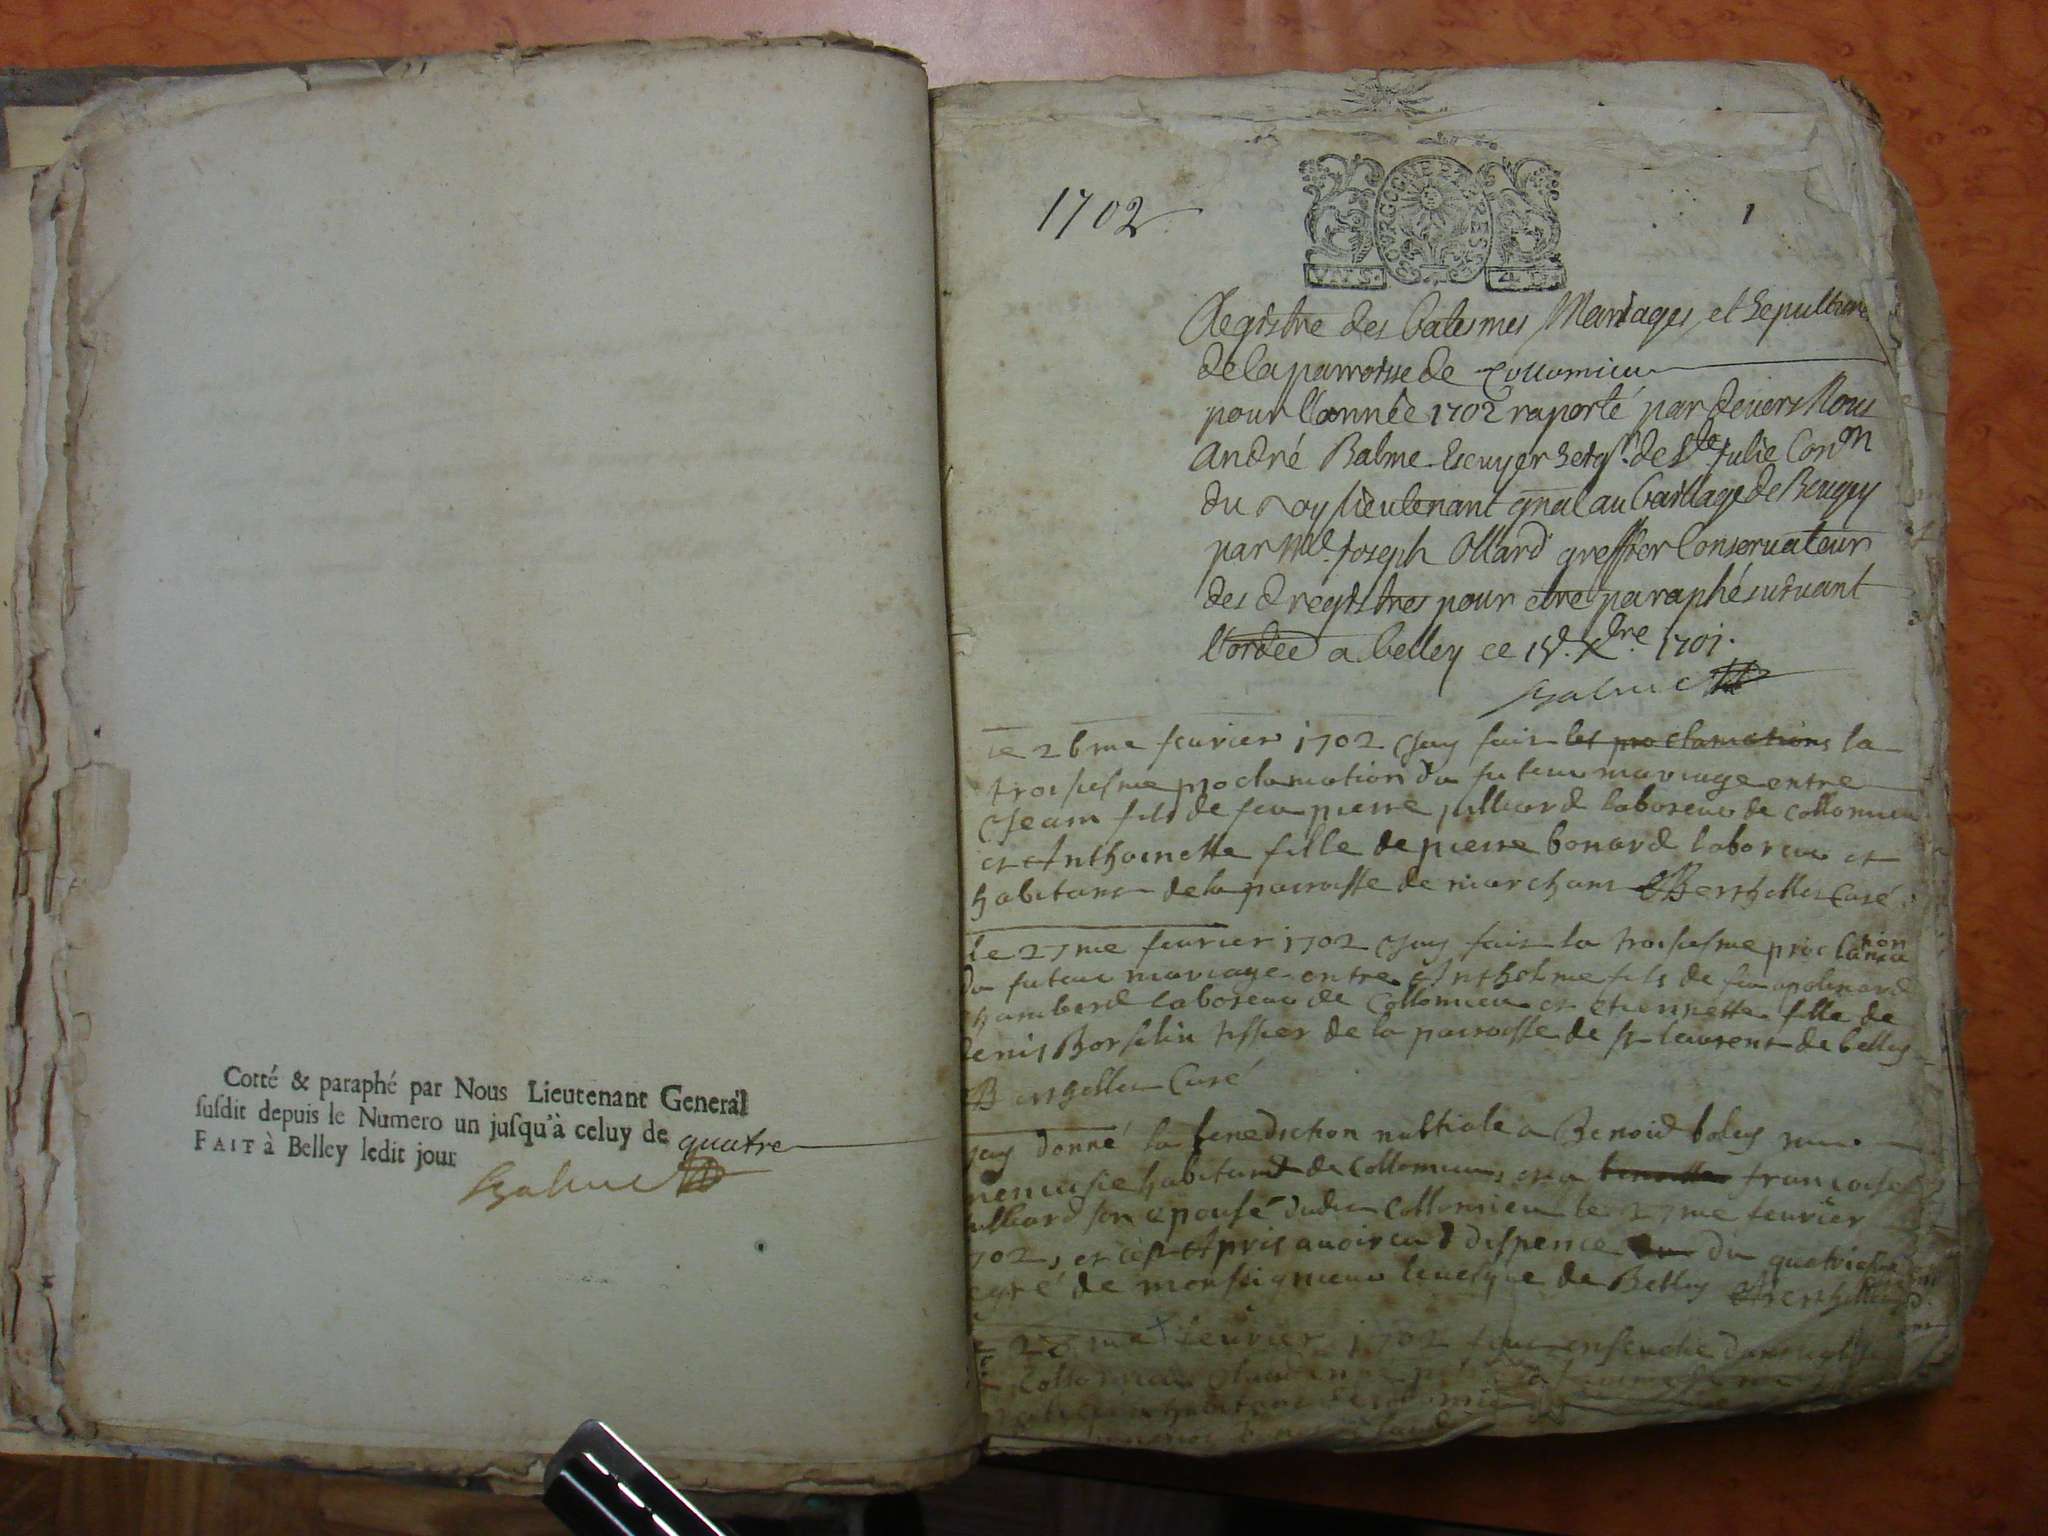 Cotté & paraphé par Nous Lieutenant General
susdit depuis le Numero un jusqu'à celuy de quatre
FAIT à Belley ledit jour
Balme
1702
1
BOURGOGNE ET BRESSE
Registre des batesmes Mariages et sepulture
de la parroisse de Collomieu
pour l'année 1702 raporté pardevers Nous
André Balme Escuyer seigr. de Ste Julie Con
du roy lieutenant gnal au bailliage de Beugey
par Me. Joseph Ollard greffier Conservateur
des d registres pour etre paraphé suivant
l'ordce a belley ce Xbre 1701.
Balme
le 26me fevrier 1702 Jay fait les proclamations la
troisiesme proclamation du futeur mariage entre
Jean fils de feu pierre julliard laboreur de Collomieu
et Anthoinette fille de pierre bonard laboreur et
habitant de la parroisse de marchant Berthellet Curé
le 27me fevrier 1702 Jay fait la troisiesme proclamation
du futeur mariage entre Anthelme fils de feu apolinard
chamberd laboreur de Collomieu et etiennette fille de
denis Borsilin tissier de la parroisse de st laurent de belley
Berthellet Curé
Jay donné la benediction nubtiale a Benoid boley
habitant de Collomieu, et a francoise
julliard son epousé dudit Collomieu le 27me fevrier
1702, et cest Apris avoir eu dispence du quatriesme
degré de monseigneur levesque de Belley Berthellet
28me fevrier 1702
Collomieu